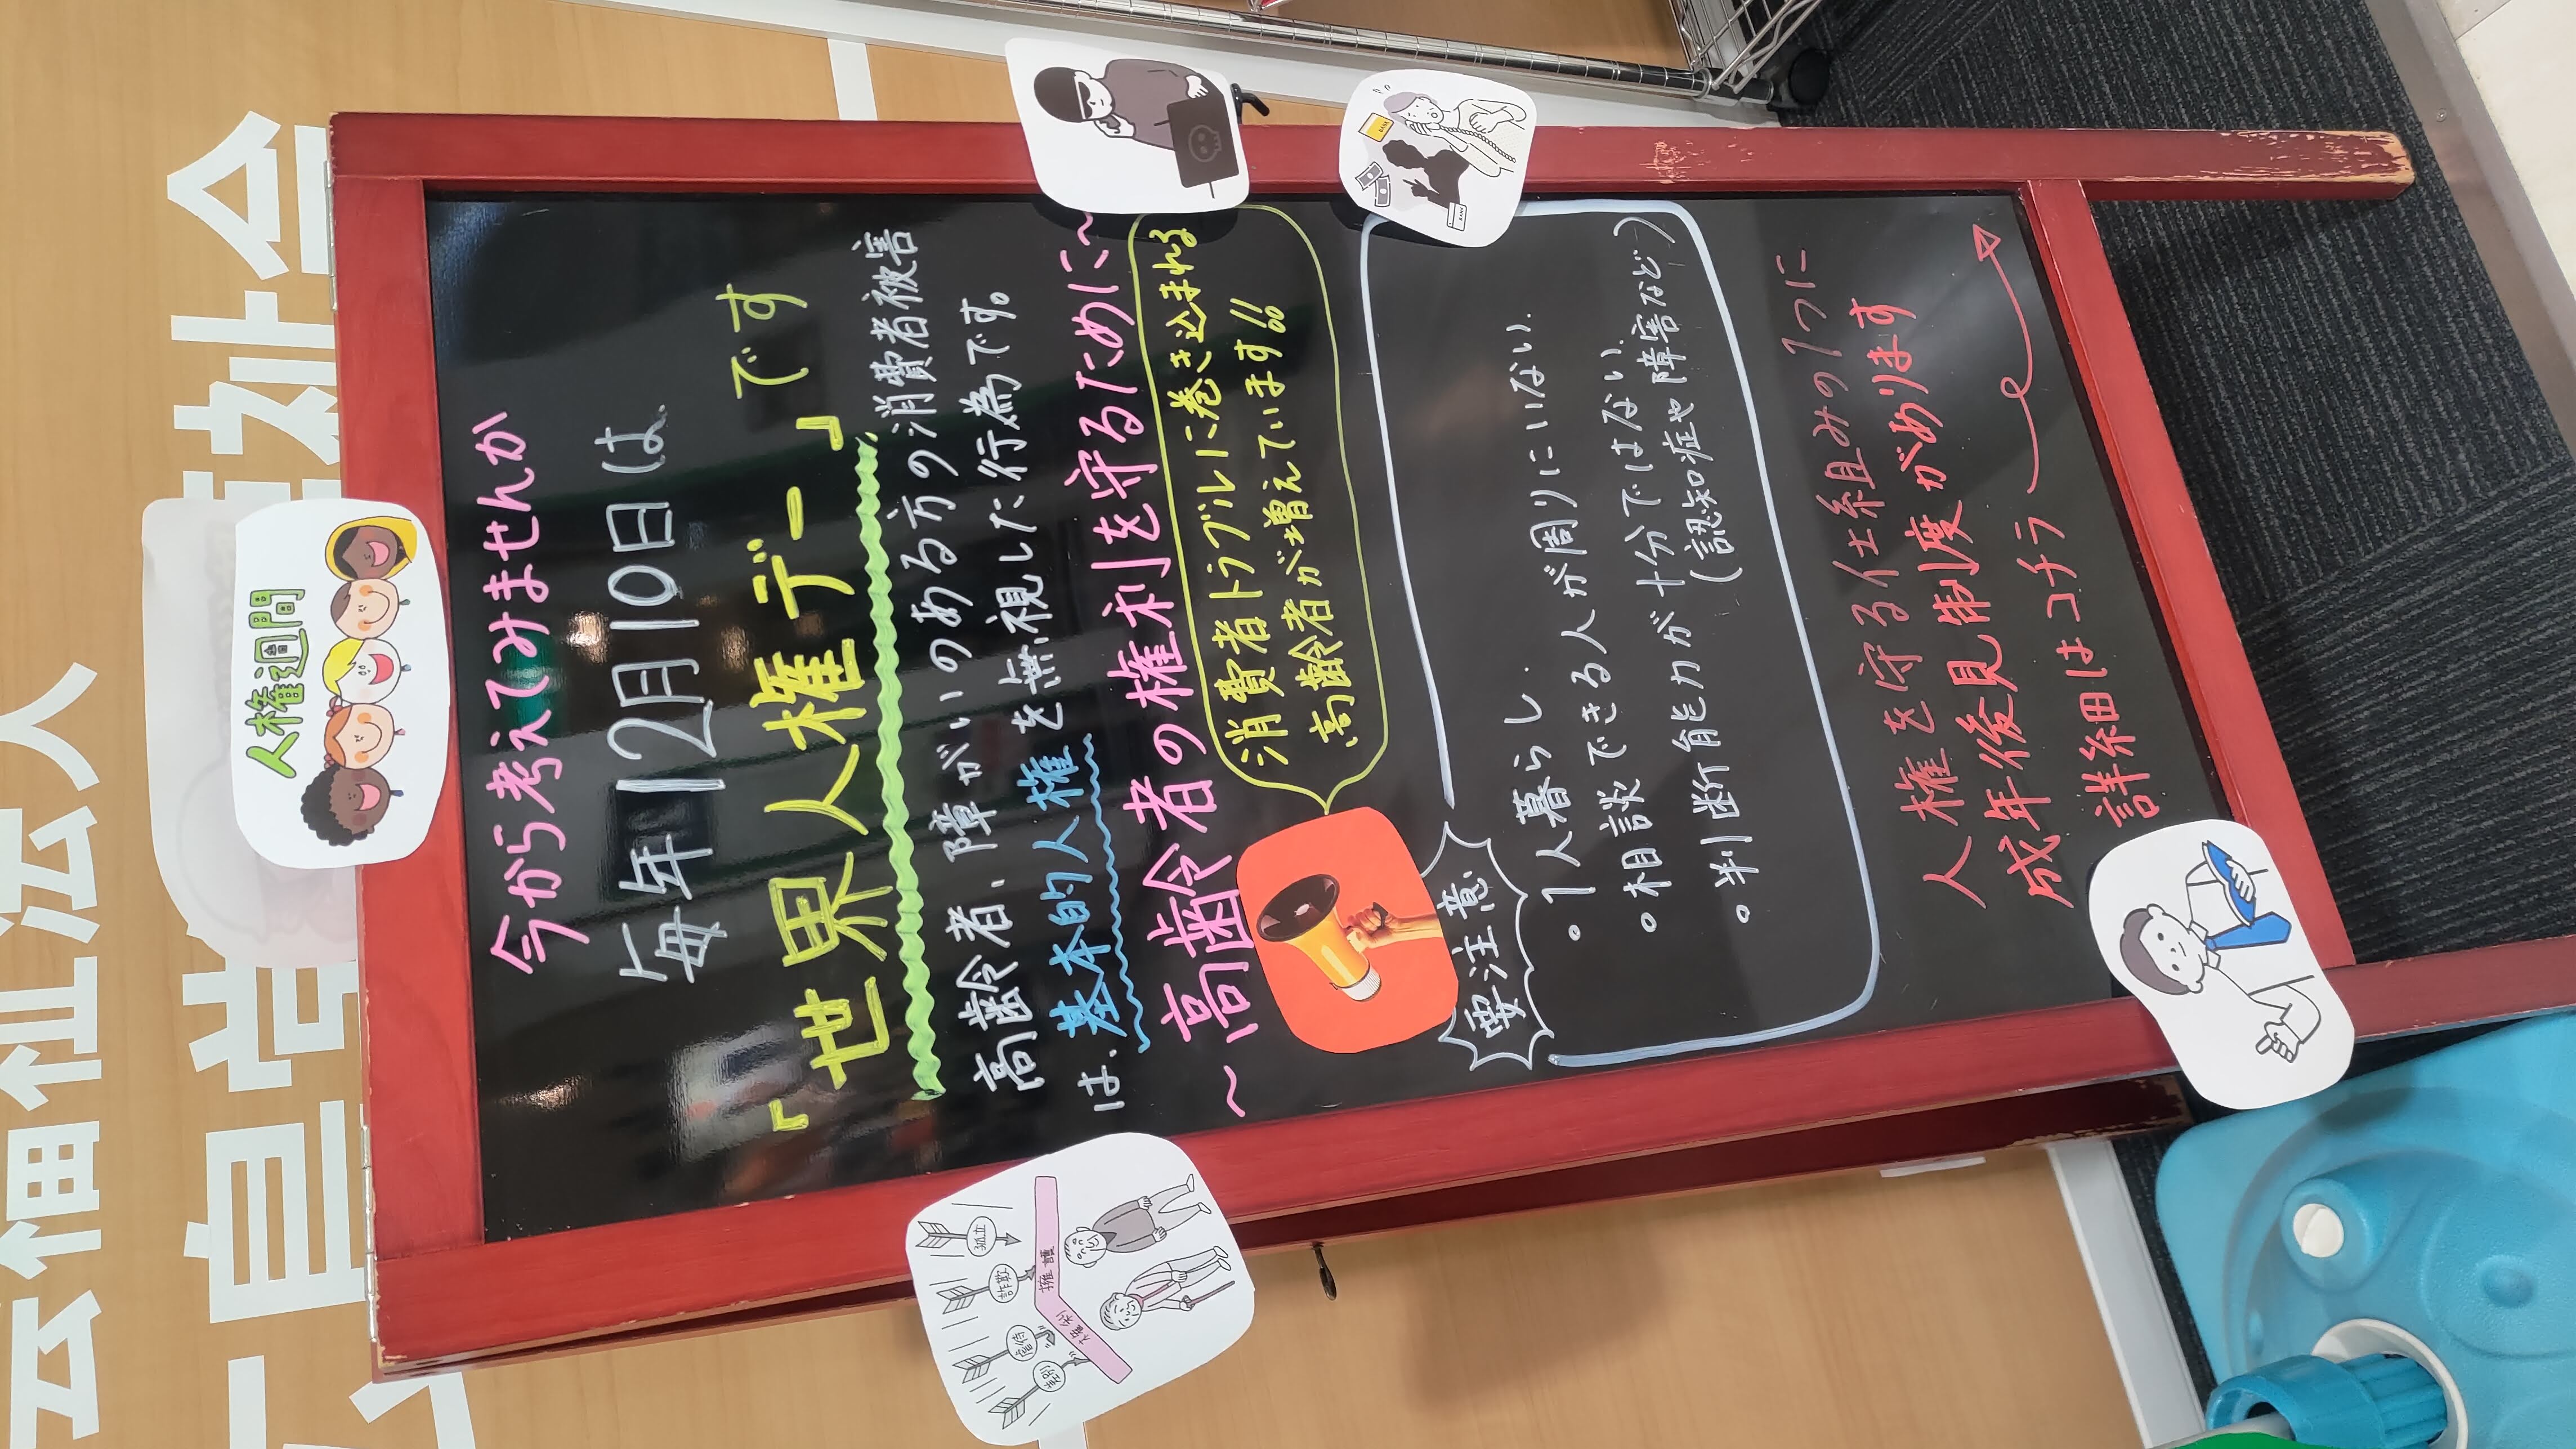 人権週間
今から考えてみませんか
毎年12月10日は、
「世界人権デー」です
高齢者、障がいのある方の消費者被害
は、基本的人権を無視した行為です。
～高齢者の権利を守るために～
消費者トラブルに巻き込まれる
高齢者が増えています!!
要注意
・1人暮らし、
・相談できる人が周りにいない、
・判断能力が十分ではない、
(認知症や障害など)
人権を守る仕組みの1つに
成年後見制度があります
詳細はコチラ
差別
虐待
詐欺
孤立
権利
擁護
BANK
BANK